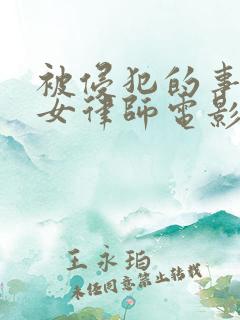 被侵犯的事
女律师电影
王永珀
未经同意禁止转载